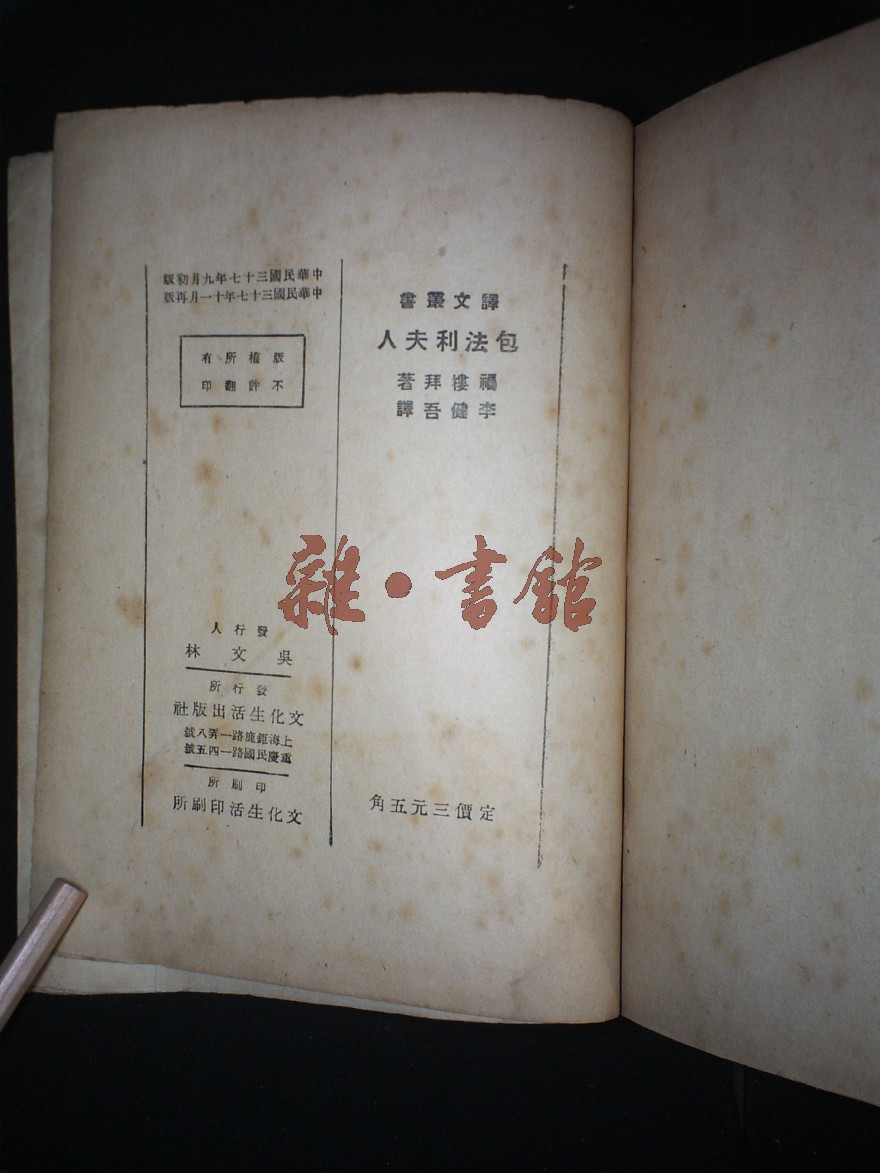 譯文叢書
包法利夫人
福樓拜著
李健吾譯
定價三元五角
中華民國三十七年九月初版
中華民國三十七年十一月再版
版權所有
不許翻印
發行人
吳文林
發行所
文化生活出版社
上海鉅鹿路一弄八號
重慶民國路一四五號
印刷所
文化生活印刷所
雜·書館